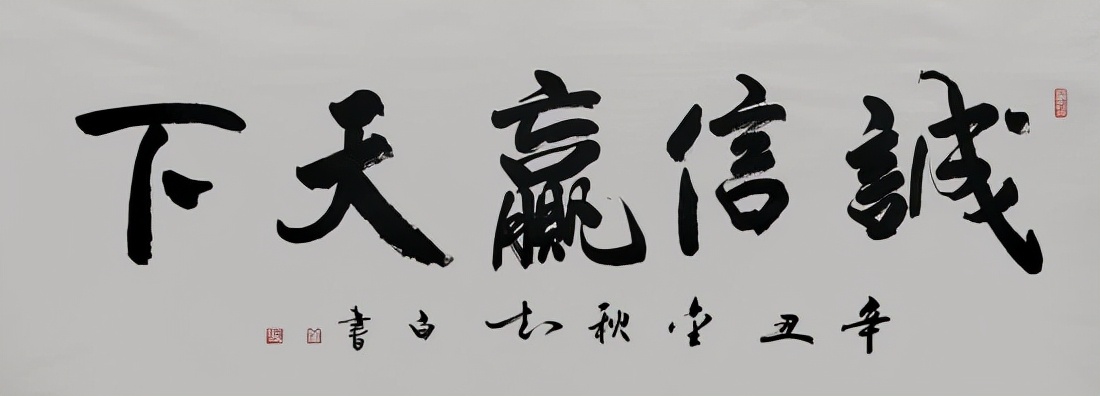 誠信贏天下
辛丑金秋知白書